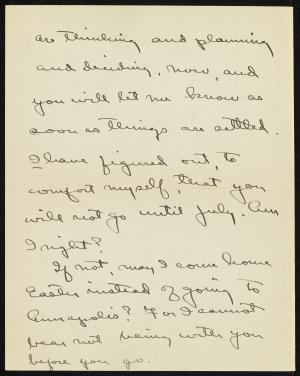 are thinking and planning
and deciding, now, and
you will let me know as
soon as things are settled.
I have figured out, to
comfort myself, that you
will not go until July. Am
I right?
If not, may I come home
Easter instead of going to
Annapolis? For I cannot
bear not being with you
before you go.